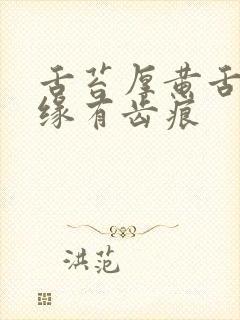 舌苔厚黄舌
缘有齿痕
洪范